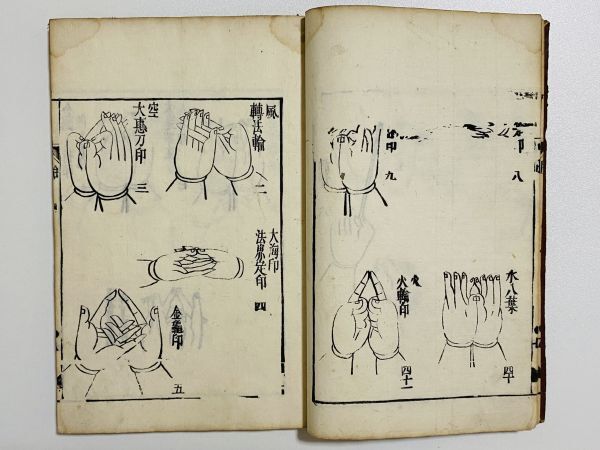 印 八
印 九
水八葉
四十
火
火輪印
四十一
風
轉法輪
二
空
大惠刀印
三
大海印
法界定印
四
金龜印
五